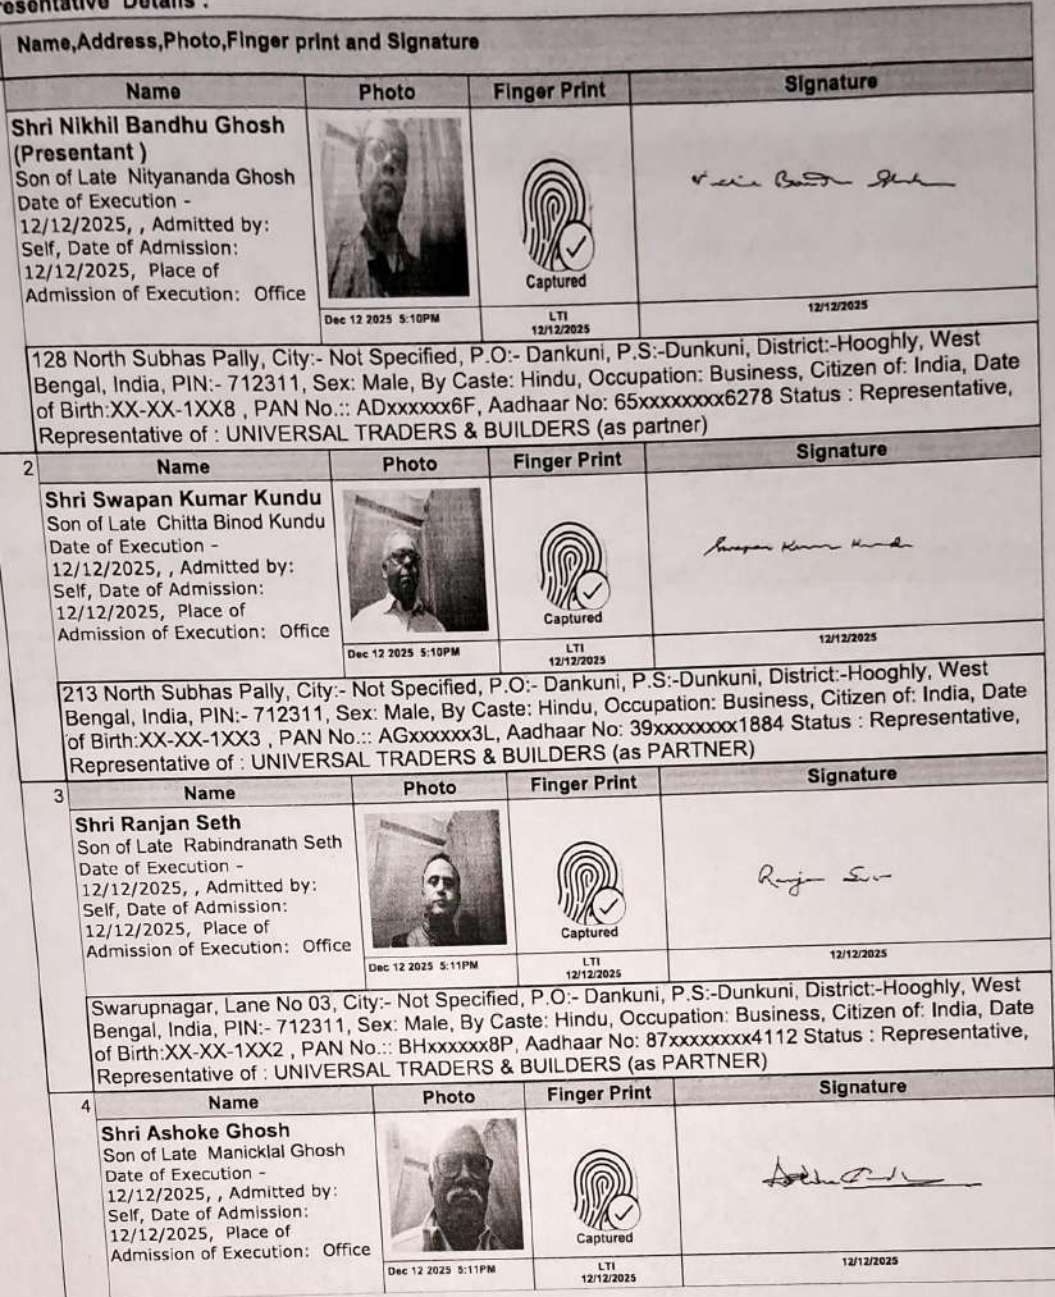 resentative Details :
Name,Address,Photo,Finger print and Signature
Name Photo Finger Print Signature
Shri Nikhil Bandhu Ghosh
(Presentant )
Son of Late Nityananda Ghosh
Date of Execution -
12/12/2025, , Admitted by:
Self, Date of Admission:
12/12/2025, Place of
Admission of Execution: Office
Captured
Dec 12 2025 5:10PM
LTI
12/12/2025
12/12/2025
128 North Subhas Pally, City:- Not Specified, P.O:- Dankuni, P.S:-Dunkuni, District:-Hooghly, West
Bengal, India, PIN:- 712311, Sex: Male, By Caste: Hindu, Occupation: Business, Citizen of: India, Date
of Birth:XX-XX-1XX8 , PAN No.:: ADxxxxxx6F, Aadhaar No: 65xxxxxxxx6278 Status : Representative,
Representative of : UNIVERSAL TRADERS & BUILDERS (as partner)
2 Name Photo Finger Print Signature
Shri Swapan Kumar Kundu
Son of Late Chitta Binod Kundu
Date of Execution -
12/12/2025, , Admitted by:
Self, Date of Admission:
12/12/2025, Place of
Admission of Execution: Office
Captured
Swapan Kumar Kundu
Dec 12 2025 5:10PM
LTI
12/12/2025
12/12/2025
213 North Subhas Pally, City:- Not Specified, P.O:- Dankuni, P.S:-Dunkuni, District:-Hooghly, West
Bengal, India, PIN:- 712311, Sex: Male, By Caste: Hindu, Occupation: Business, Citizen of: India, Date
of Birth:XX-XX-1XX3 , PAN No.:: AGxxxxxx3L, Aadhaar No: 39xxxxxxxx1884 Status : Representative,
Representative of : UNIVERSAL TRADERS & BUILDERS (as PARTNER)
3 Name Photo Finger Print Signature
Shri Ranjan Seth
Son of Late Rabindranath Seth
Date of Execution -
12/12/2025, , Admitted by:
Self, Date of Admission:
12/12/2025, Place of
Admission of Execution: Office
Captured
Dec 12 2025 5:11PM
LTI
12/12/2025
12/12/2025
Swarupnagar, Lane No 03, City:- Not Specified, P.O:- Dankuni, P.S:-Dunkuni, District:-Hooghly, West
Bengal, India, PIN:- 712311, Sex: Male, By Caste: Hindu, Occupation: Business, Citizen of: India, Date
of Birth:XX-XX-1XX2 , PAN No.:: BHxxxxxx8P, Aadhaar No: 87xxxxxxxx4112 Status : Representative,
Representative of : UNIVERSAL TRADERS & BUILDERS (as PARTNER)
4 Name Photo Finger Print Signature
Shri Ashoke Ghosh
Son of Late Manicklal Ghosh
Date of Execution -
12/12/2025, , Admitted by:
Self, Date of Admission:
12/12/2025, Place of
Admission of Execution: Office
Captured
Dec 12 2025 5:11PM
LTI
12/12/2025
12/12/2025